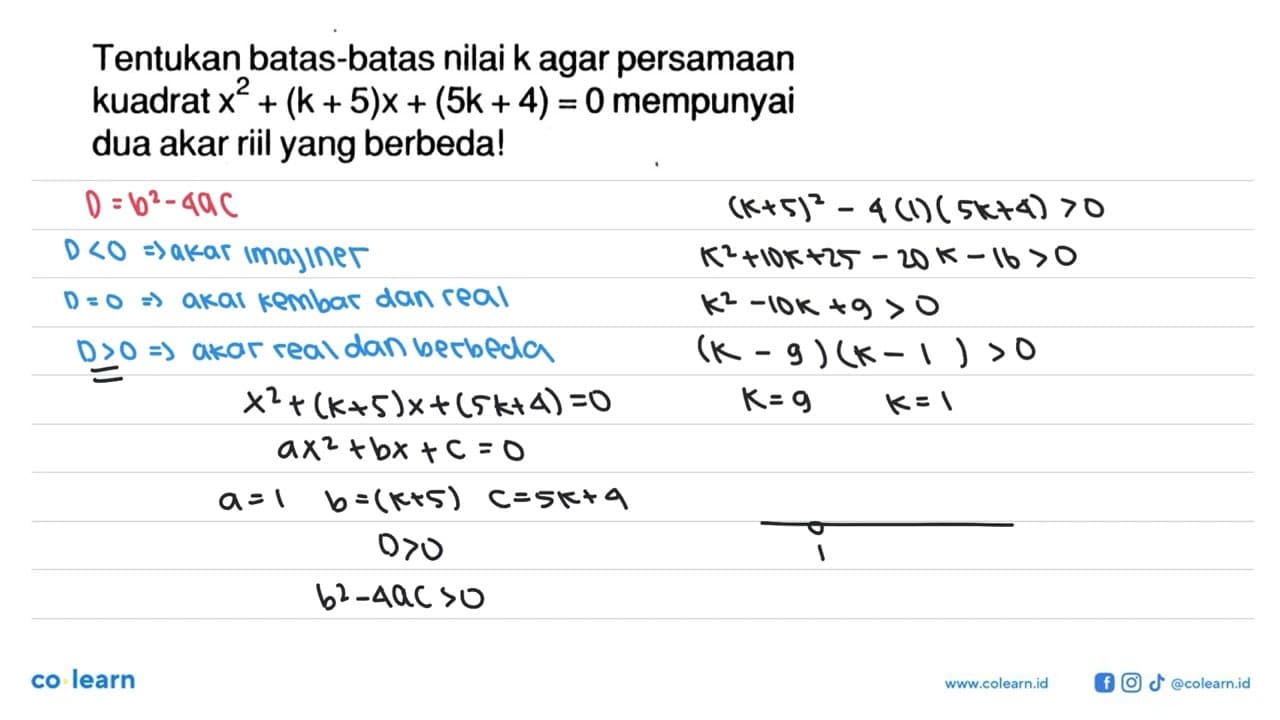 Tentukan batas-batas nilai k agar persamaan
kuadrat x² + (k + 5)x + (5k + 4) = 0 mempunyai
dua akar riil yang berbeda!
D = b² - 4ac
D < 0 => akar imajiner
D = 0 => akar kembar dan real
D > 0 => akar real dan berbeda
x² + (k+5)x + (5k+4) = 0
ax² + bx + c = 0
a = 1 b = (k+5) c = 5k+4
D > 0
b² - 4ac > 0
(k+5)² - 4(1)(5k+4) > 0
k² + 10k + 25 - 20k - 16 > 0
k² - 10k + 9 > 0
(k - 9)(k - 1) > 0
k = 9 k = 1
1
co learn
www.colearn.id
@colearn.id